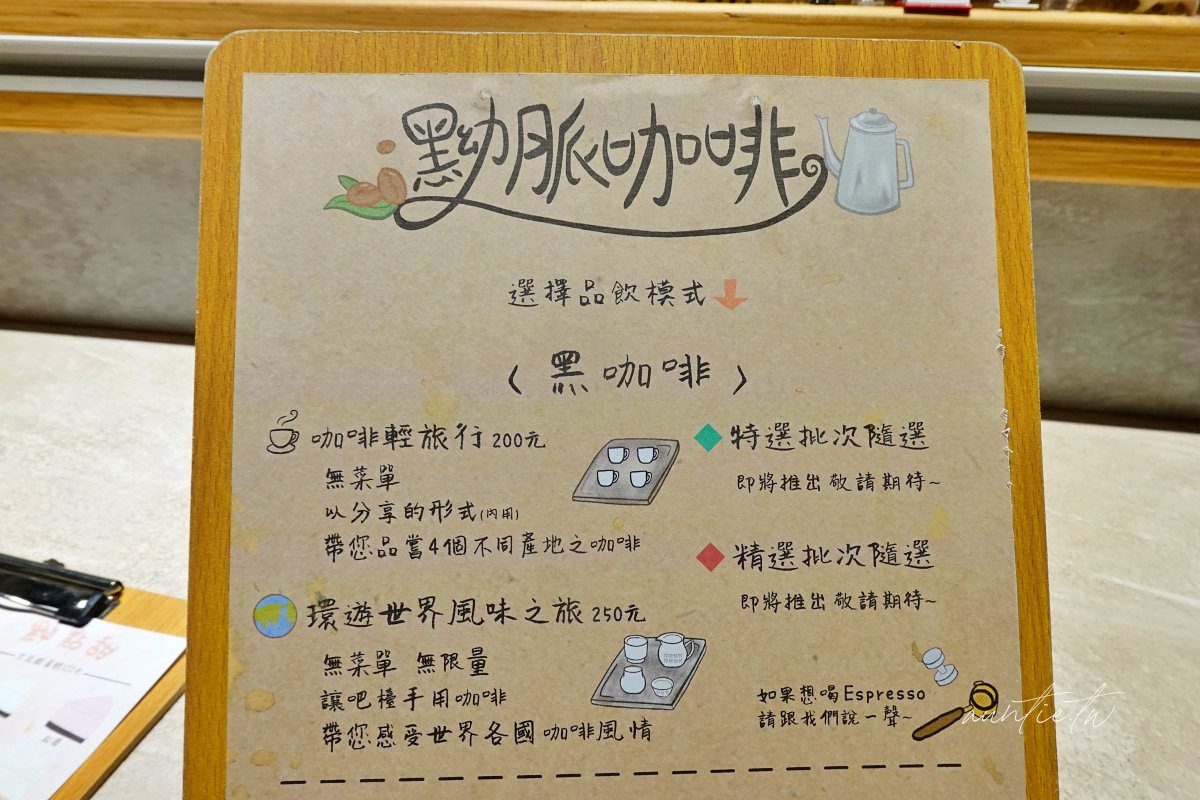 黝脈咖啡
選擇品飲模式
〈黑咖啡〉
咖啡輕旅行 200元
無菜單
以分享的形式(內用)
帶您品嘗4個不同產地之咖啡
環遊世界風味之旅 250元
無菜單 無限量
讓吧檯手用咖啡
帶您感受世界各國咖啡風情
特選批次隨選
即將推出敬請期待~
精選批次隨選
即將推出敬請期待~
如果想喝Espresso
請跟我們說一聲~
auntie.tw